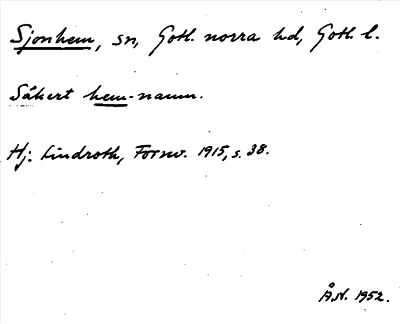 Sjonhem, sn, Gotl. norra hd, Gotl. l.
Säkert hem-namn.
Hj. Lindroth, Fornv. 1915, s. 38.
Å.N. 1952.